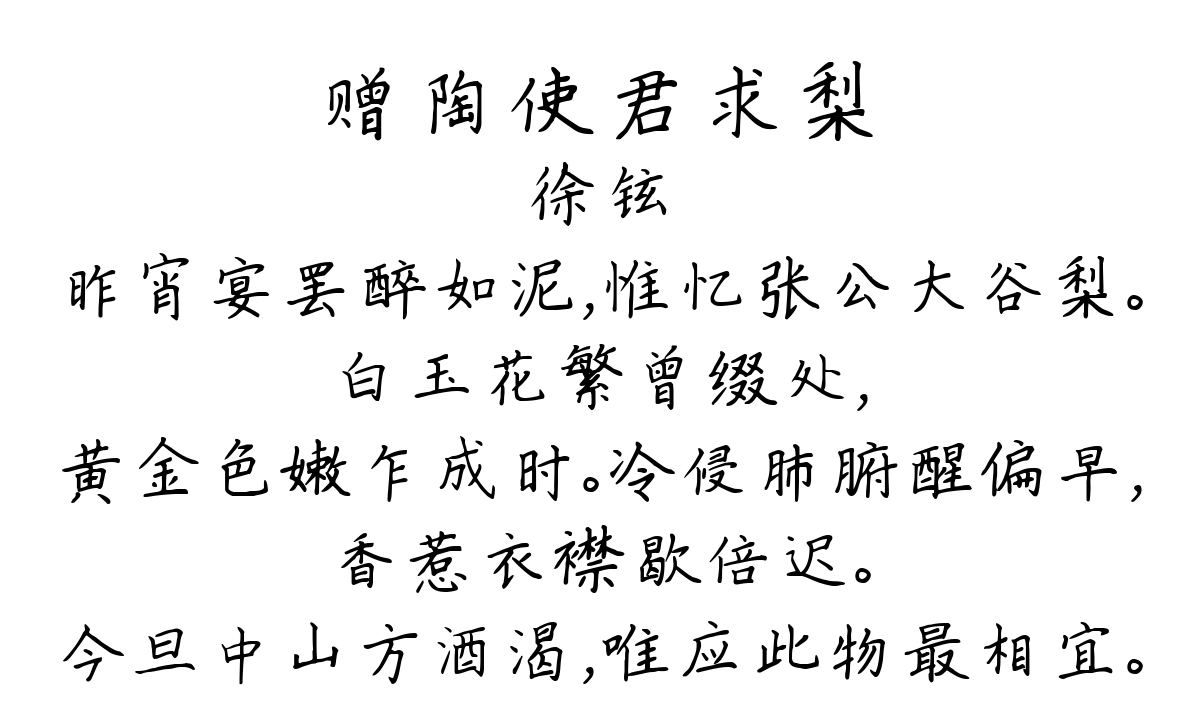 赠陶使君求梨
徐铉
昨宵宴罢醉如泥,惟忆张公大谷梨。
白玉花繁曾缀处,
黄金色嫩乍成时。冷侵肺腑醒偏早,
香惹衣襟歇倍迟。
今旦中山方酒渴,唯应此物最相宜。